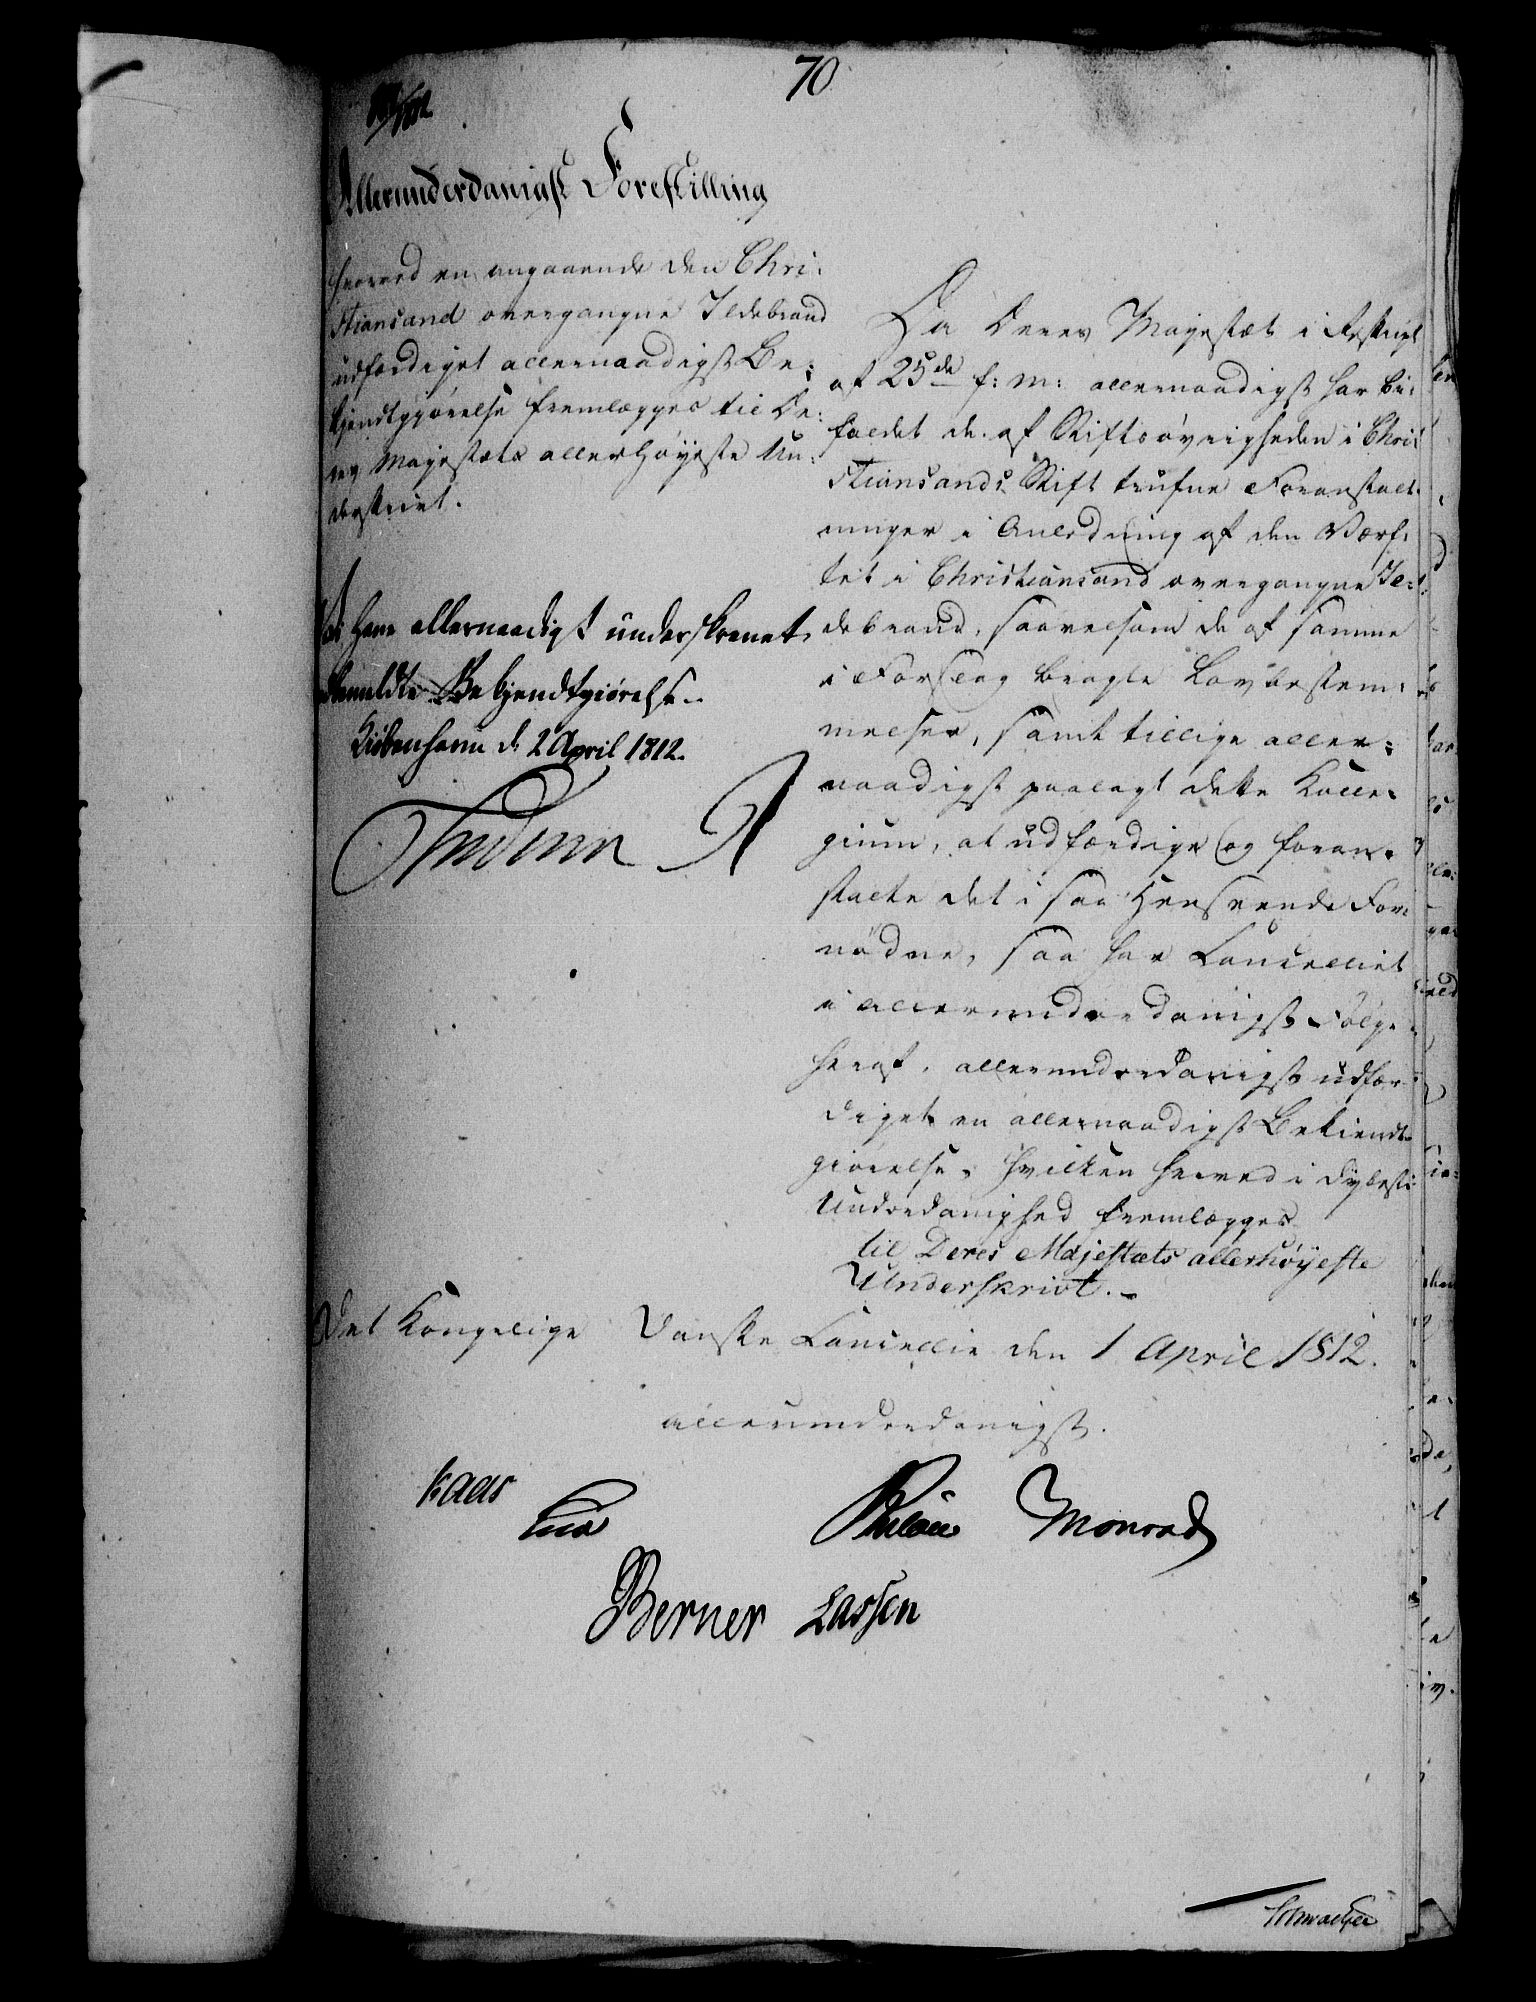 70
Allerunderdanigst Forestilling
hvorved en angaaende den Chri-
stiansand overgangne Ildebrand
udfærdiget allernaadigst Be-
kjendtgjørelse fremlægges til De-
res Majestæts allerhøyeste Un-
derskrivt.
Vi have allernaadigst underskrevet
bemeldte Bekjendtgiørelse.
Kiøbenhavn d. 2 April 1812.
Frederik R
Da Deres Majestæt i Rescript
af 25de f: m: allernaadigst har bi-
faldet de af Stiftsøvrigheden i Chri-
stiansands Stift trufne Foranstalt-
ninger i Anledning af den Værf-
tet i Christiansand overgangne Il-
debrand, saavelsom de af samme
i Forslag bragte Lovbestem-
melser, samt tillige aller-
naadigst paalagt dette Kolle-
gium, at udfærdige og foran-
stalte det i saa Henseende For-
nødne, saa har Cancelliet
i allerunderdanigst Følge
heraf, allerunderdanigst udfær-
diget en allernaadigst Bekiendt-
giørelse, hvilken herved i dybeste
Underdanighed fremlægges
til Deres Majestæts allerhøyeste
Underskrivt.
Det Kongelige Danske Cancellie den 1 April 1812.
allerunderdanigst.
Kaas
Monrad
Berner Lassen